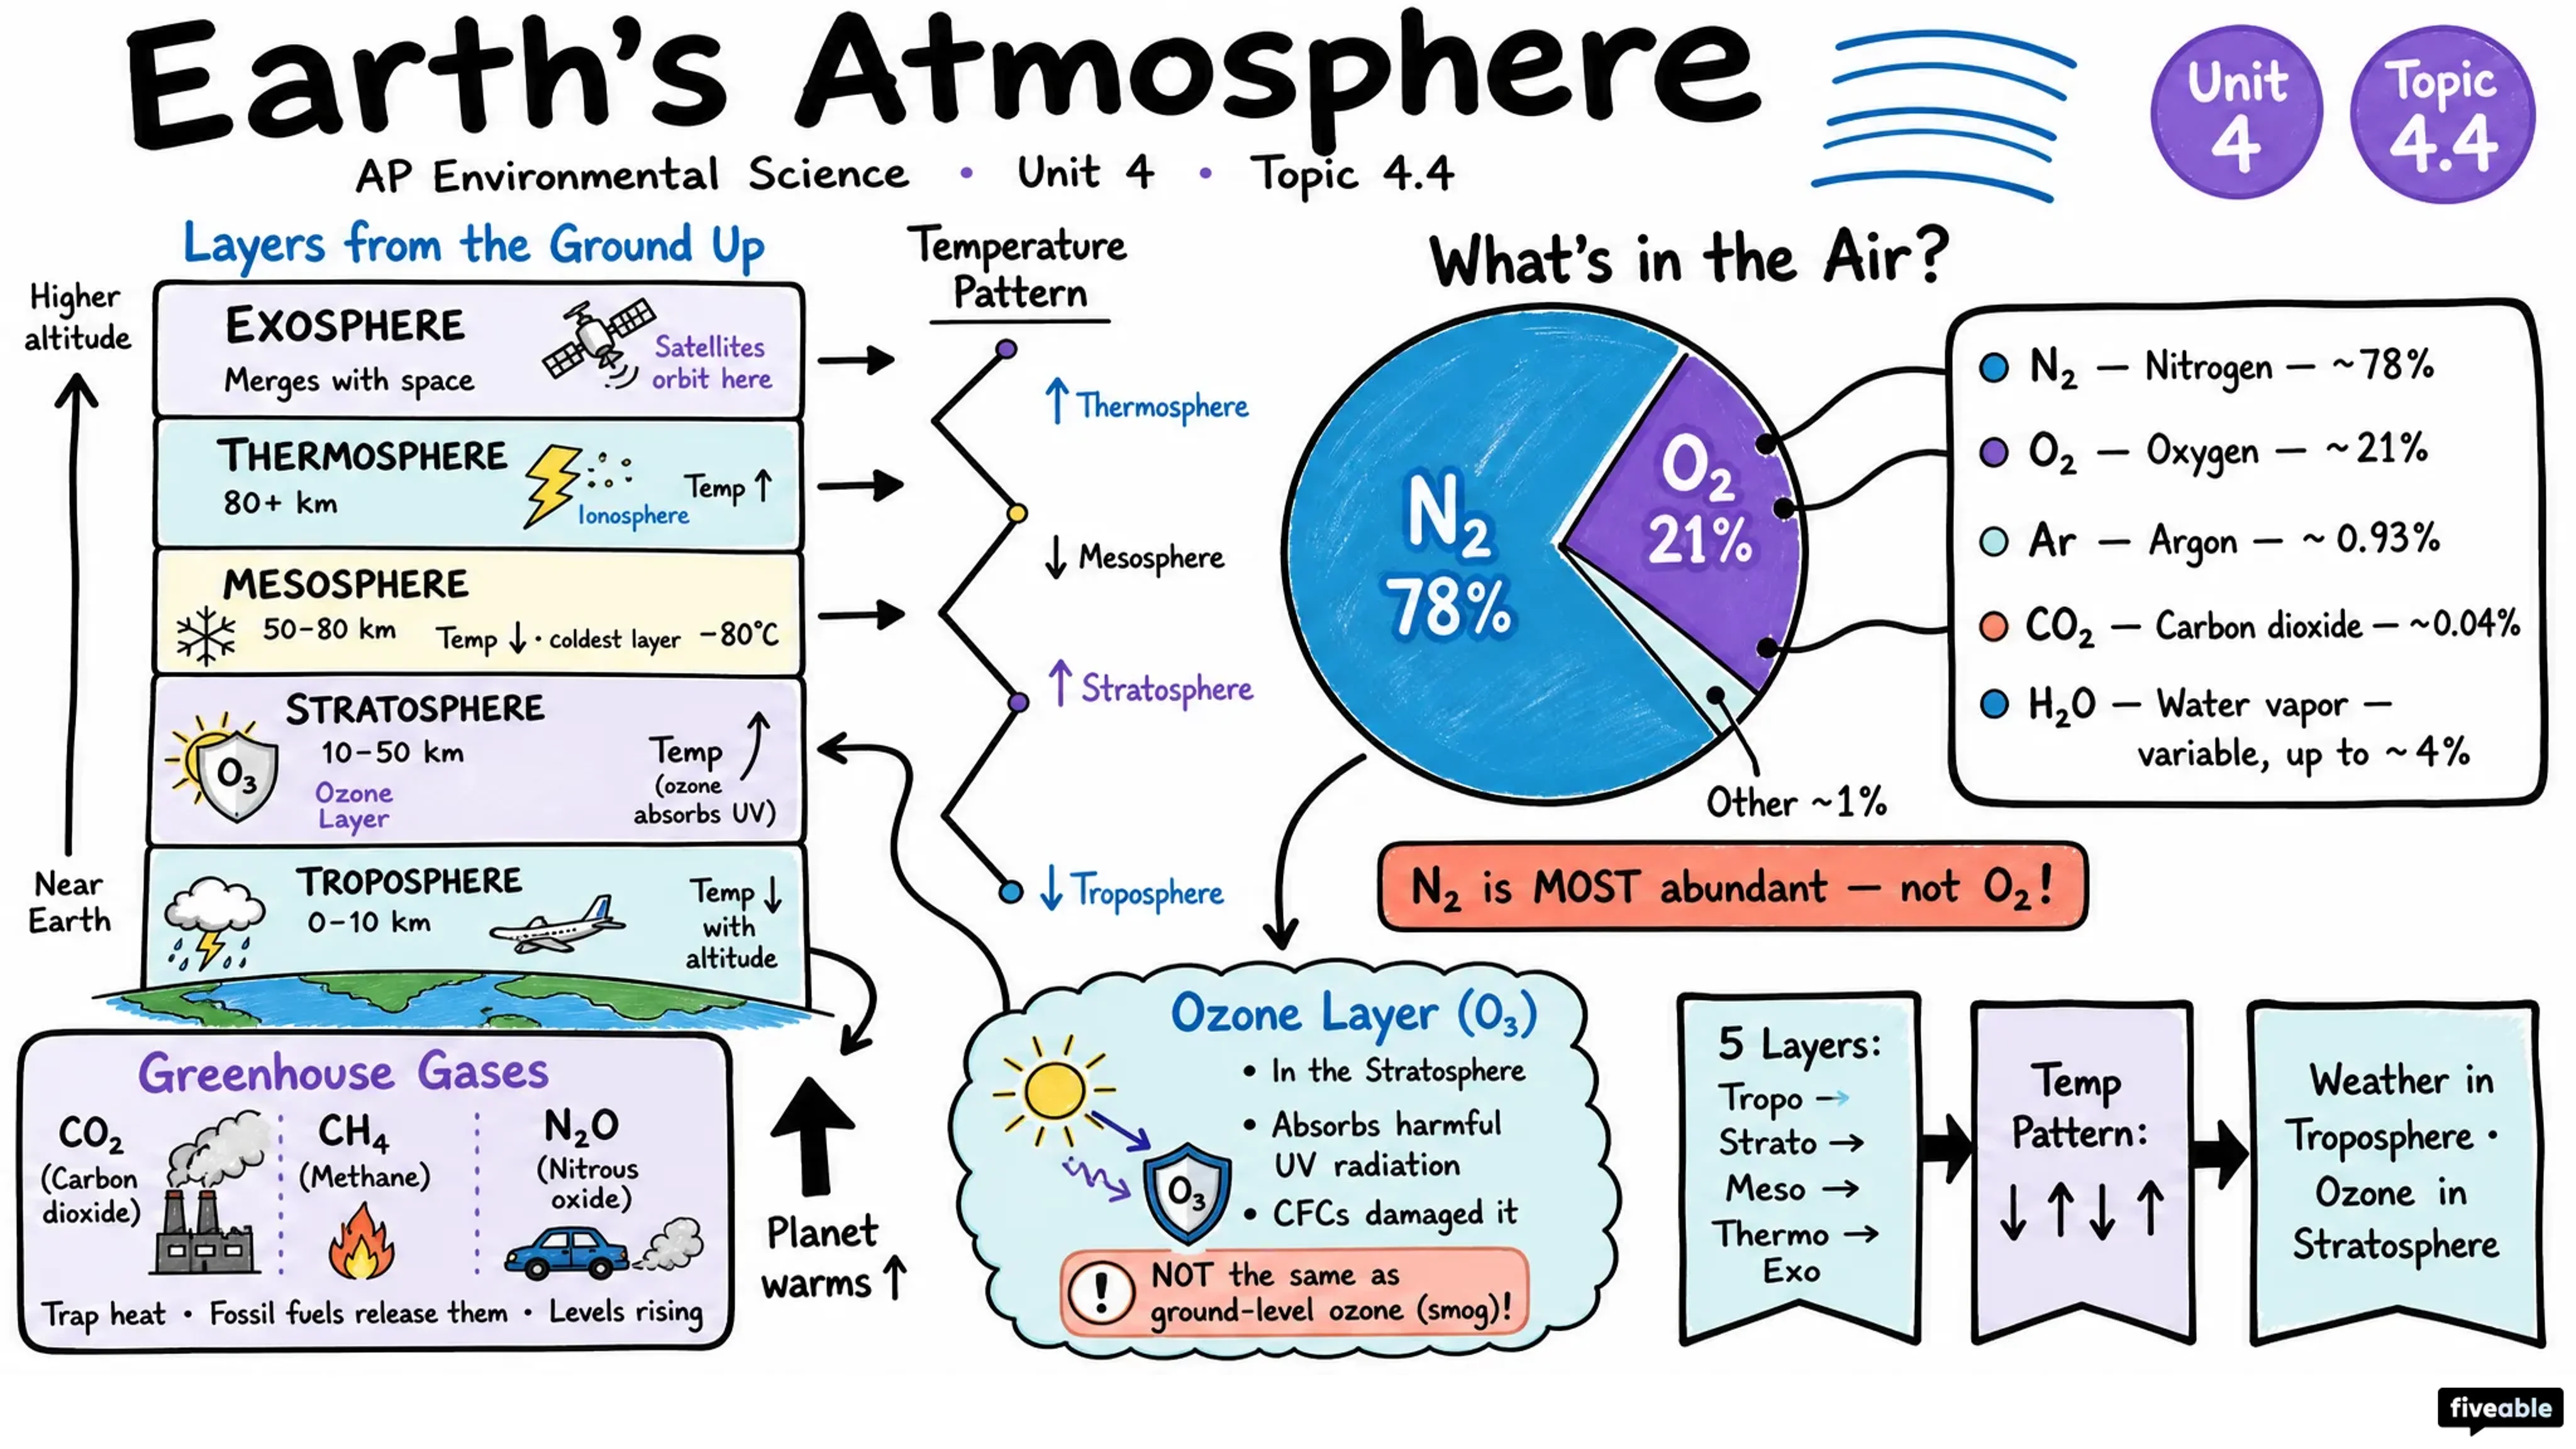 Earth's Atmosphere
AP Environmental Science • Unit 4 • Topic 4.4
Unit
4
Topic
4.4
Layers from the Ground Up
Higher
altitude
Near
Earth
EXOSPHERE
Merges with space
Satellites
orbit here
THERMOSPHERE
80+ km
Ionosphere
Temp ↑
MESOSPHERE
50-80 km
Temp ↓ · coldest layer -80°C
STRATOSPHERE
10-50 km
Ozone
Layer
O₃
Temp
(ozone
absorbs UV)
TROPOSPHERE
0-10 km
Temp ↓
with
altitude
Temperature
Pattern
↑ Thermosphere
↓ Mesosphere
↑ Stratosphere
↓ Troposphere
What's in the Air?
N₂
78%
O₂
21%
Other ~1%
N₂ — Nitrogen — ~78%
O₂ — Oxygen — ~21%
Ar — Argon — ~ 0.93%
CO₂ — Carbon dioxide — ~0.04%
H₂O — Water vapor —
variable, up to ~ 4%
N₂ is MOST abundant — not O₂!
Greenhouse Gases
CO₂
(Carbon
dioxide)
CH₄
(Methane)
N₂O
(Nitrous
oxide)
Trap heat • Fossil fuels release them • Levels rising
Planet
warms ↑
Ozone Layer (O₃)
• In the Stratosphere
• Absorbs harmful
UV radiation
• CFCs damaged it
O₃
! NOT the same as
ground-level ozone (smog)!
5 Layers:
Tropo →
Strato →
Meso →
Thermo →
Exo
Temp
Pattern:
↓ ↑ ↓ ↑
Weather in
Troposphere •
Ozone in
Stratosphere
fiveable